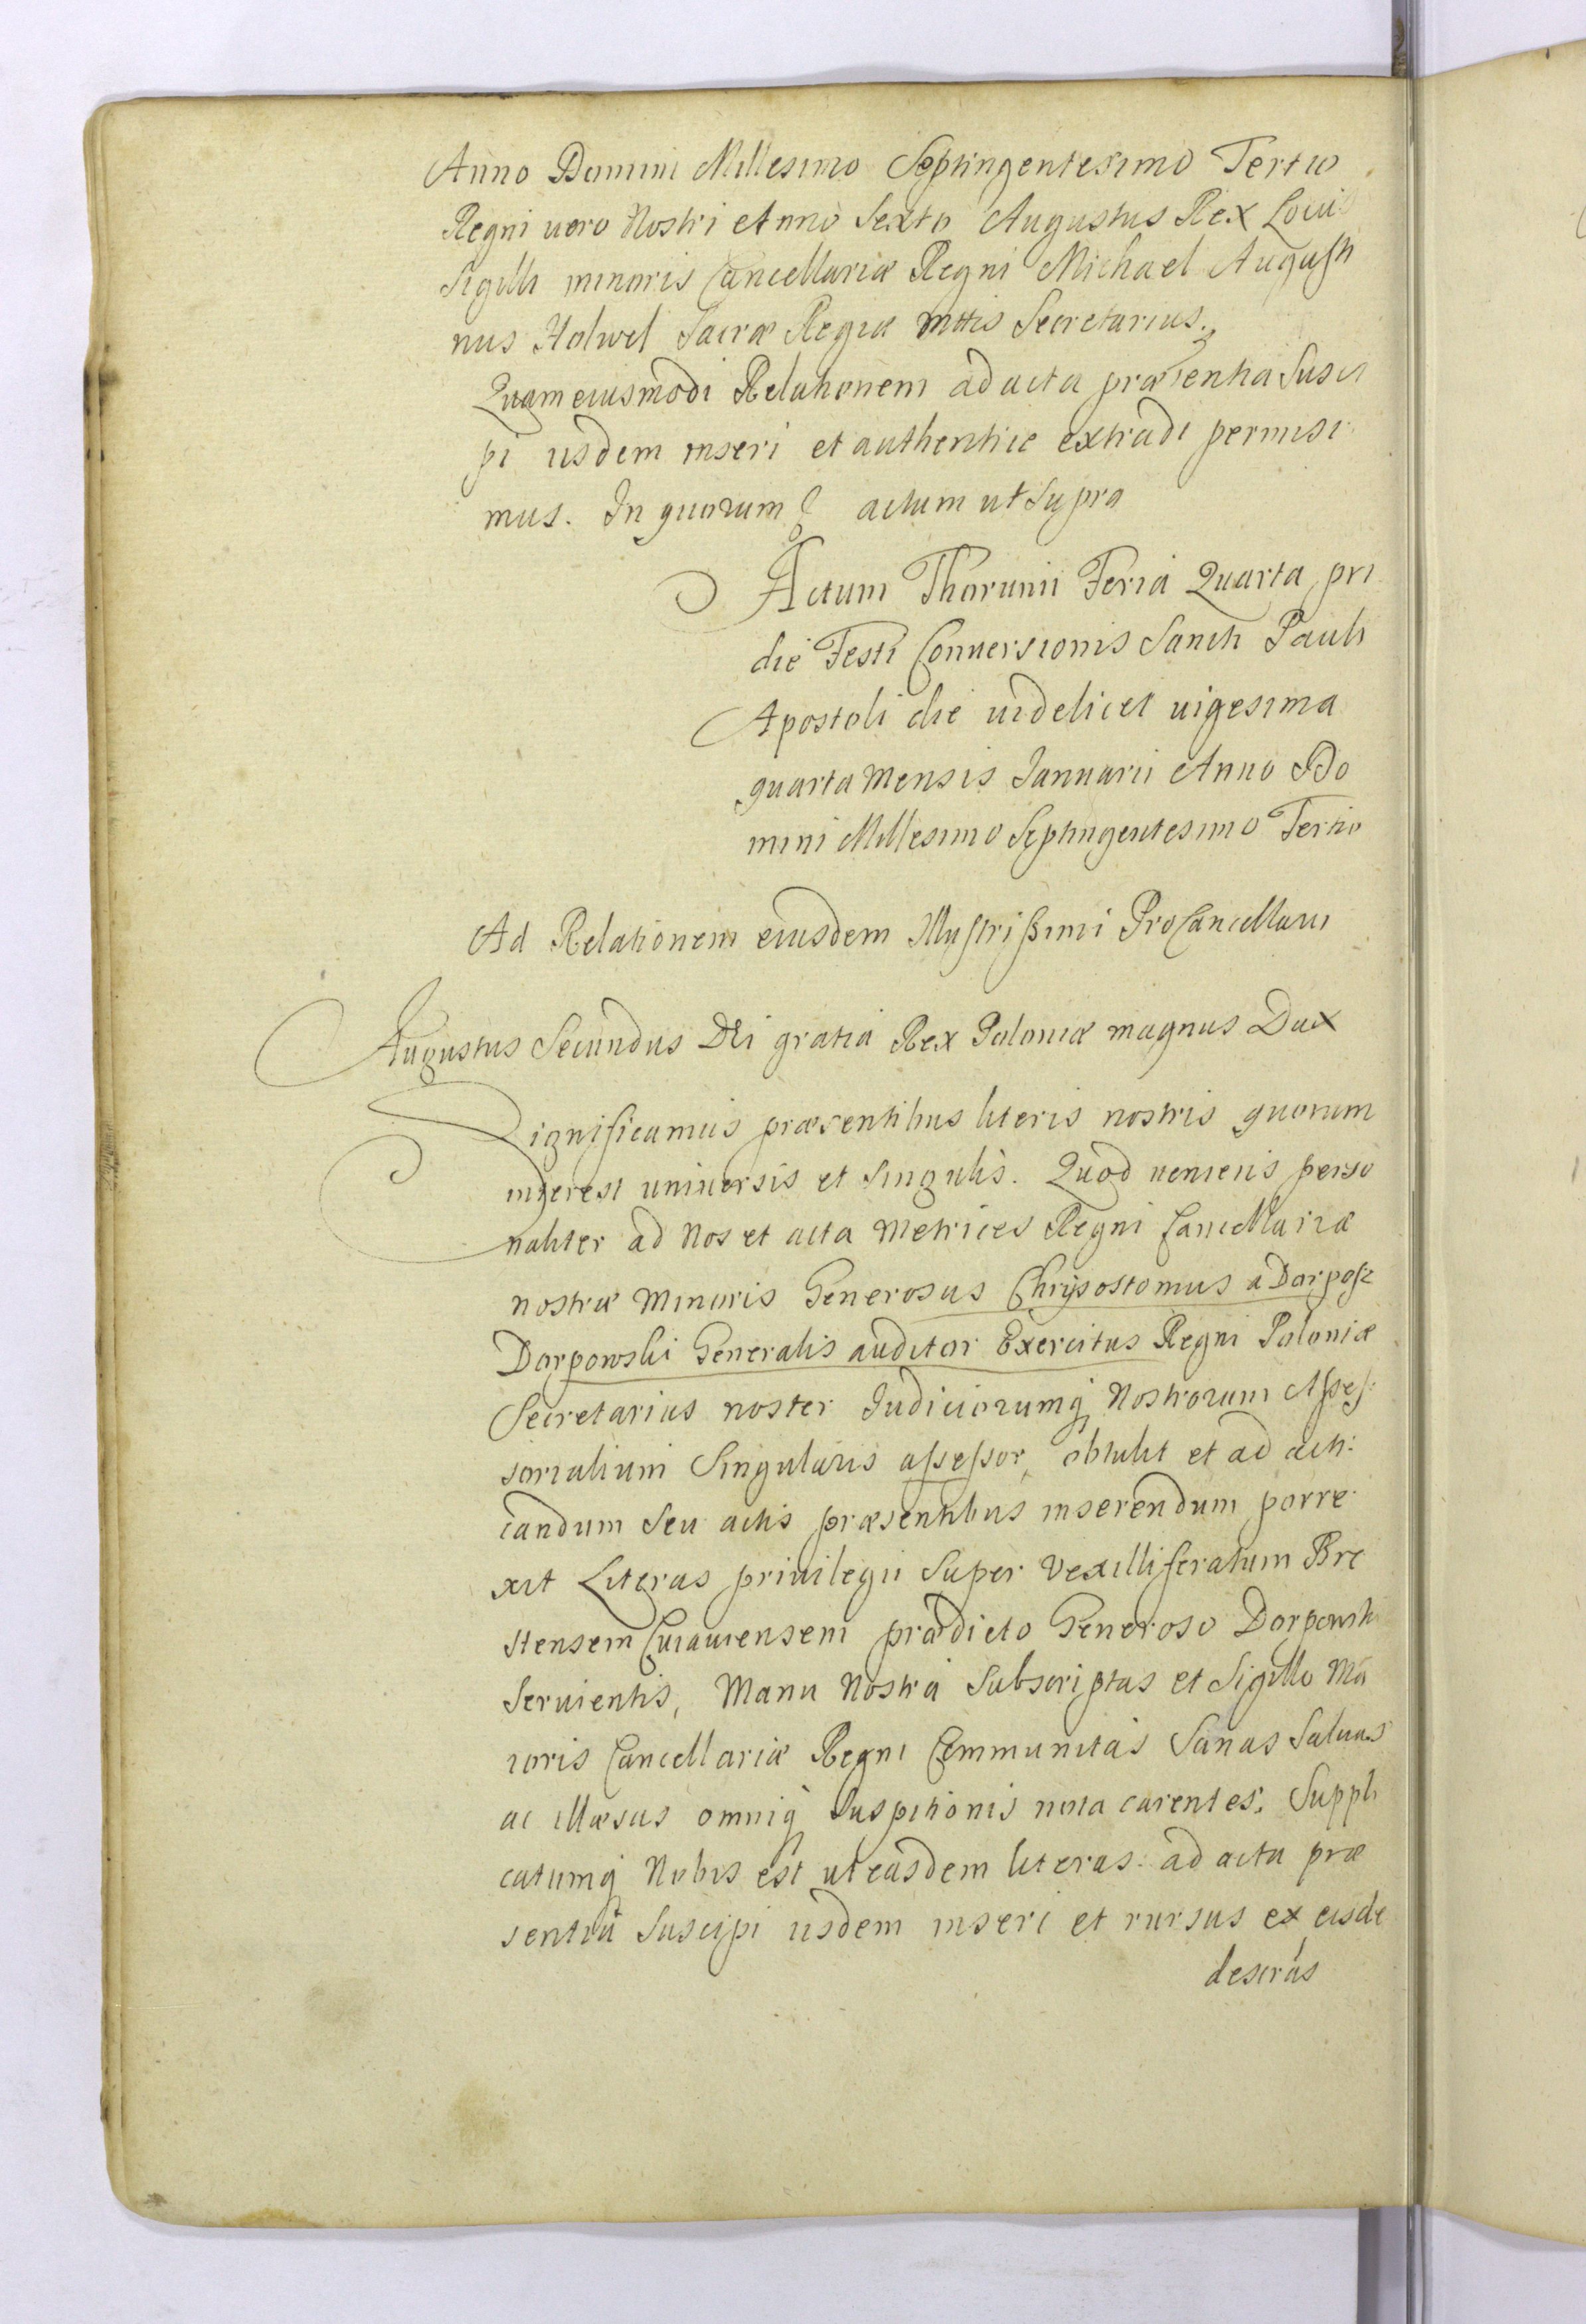 Anno Domini Millesimo Septingentesimo Tertio
Regni uero Nostri Anno Sexto Augustus Rex Locus
Sigilli minoris Cancellariæ Regni Michael Augusti
nus Holwel Sacræ Regiæ Mttis Secretarius.
Quam eiusmodi Relationem ad acta præsentia Susci
pi iisdem inseri et authentice extradi permisi
mus. In quorum actum ut Supra
Actum Thorunii Feria Quarta pri
die Festi Conuersionis Sancti Pauli
Apostoli die uidelicet uigesima
quarta Mensis Januarii Anno Do
mini Millesimo Septingentesimo Tertio
Ad Relationem eiusdem Illustrissimi ProCancellarii
Augustus Secundus Dei gratia Rex Poloniæ magnus Dux
Significamus præsentibus literis nostris quorum
interest uniuersis et singulis. Quod ueniens perso
naliter ad Nos et acta Metrices Regni Cancellariæ
nostræ Minoris Generosus Chrysostomus a Dorposz
Dorpowski Generalis auditor Exercitus Regni Poloniæ
Secretarius noster Judiciorumq Nostrorum Asses
sorialium Singularis assessor, obtulit et ad acti
candum seu actis præsentibus inserendum porre
xit Literas priuilegii Super Vexilliferatum Bre
stensem Cuiauiensem prædicto Generoso Dorpowski
Seruientis, Manu Nostra Subscriptas et Sigillo Ma
ioris Cancellariæ Regni Communitas Sanas Saluas
ac illæsas omniq Suspitionis nota carentes. Suppli
catumq Nobis est ut easdem literas ad acta præ
sentia Suscipi iisdem inseri et rursus ex eisde
descrās